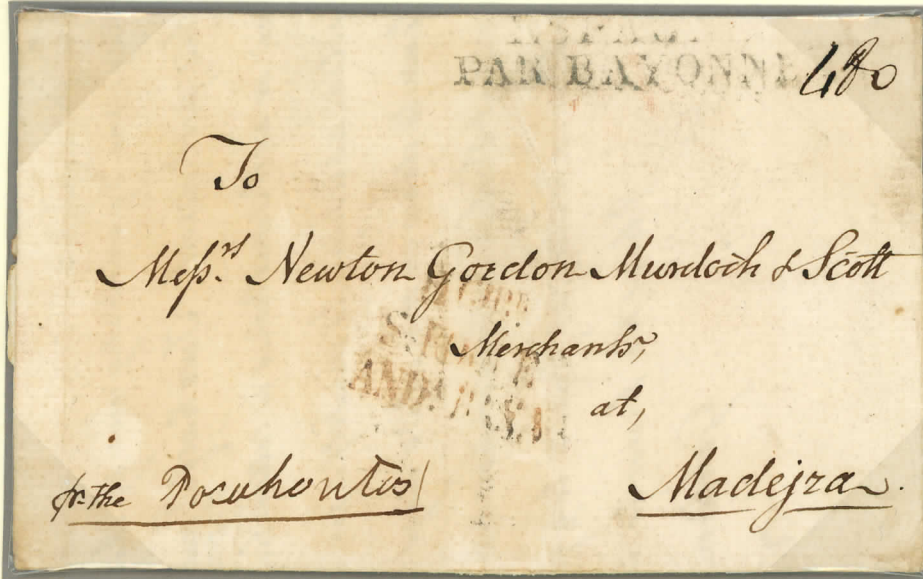 PAR BAYONNE
480
To
Messrs Newton Gordon Murdoch & Scott
Merchants,
at,
ANDA
Madejra
pr the Pocahontas